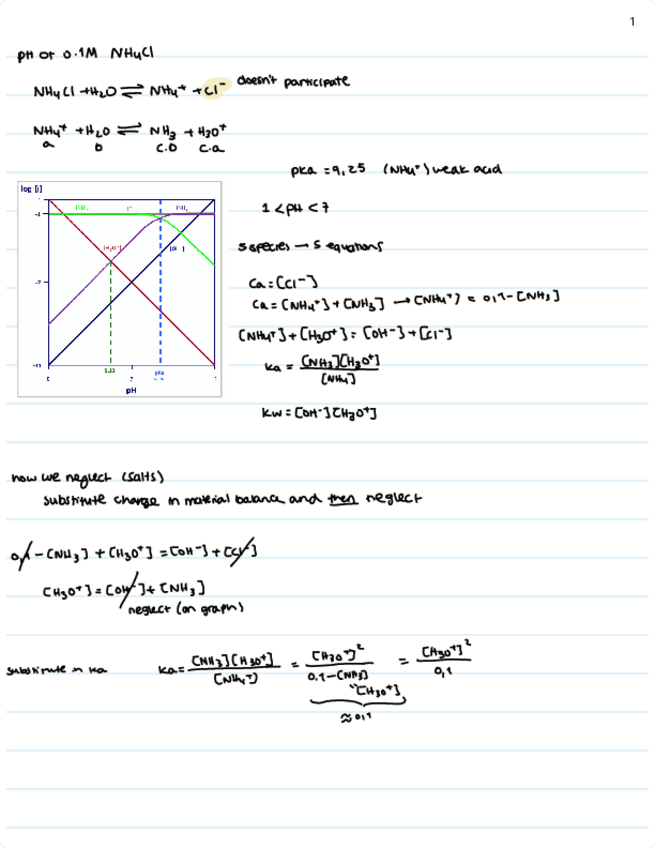 1
pH of 0.1M NH4Cl
NH4Cl + H2O ⇌ NH4+ + Cl- doesn't participate
NH4+ + H2O ⇌ NH3 + H3O+
a b c.b c.a
pka = 9,25 (NH4+) weak acid
1 < pH < 7
5 species → 5 equations
Ca = [Cl-]
Ca = [NH4+] + [NH3] → [NH4+] = 0,1 - [NH3]
[NH4+] + [H3O+] = [OH-] + [Cl-]
ka = [NH3][H3O+] / [NH4]
kw = [OH-][H3O+]
log [i]
pH
now we neglect (salts)
substitute charge in material balance and then neglect
0,1 - [NH3] + [H3O+] = [OH-] + [Cl-]
[H3O+] = [OH-] + [NH3]
neglect (on graph)
substitute in ka ka = [NH3][H3O+] / [NH4+] = [H3O+]² / 0.1 - [NH3] = [H3O+]² / 0,1
"[H3O+]
≈ 0,1